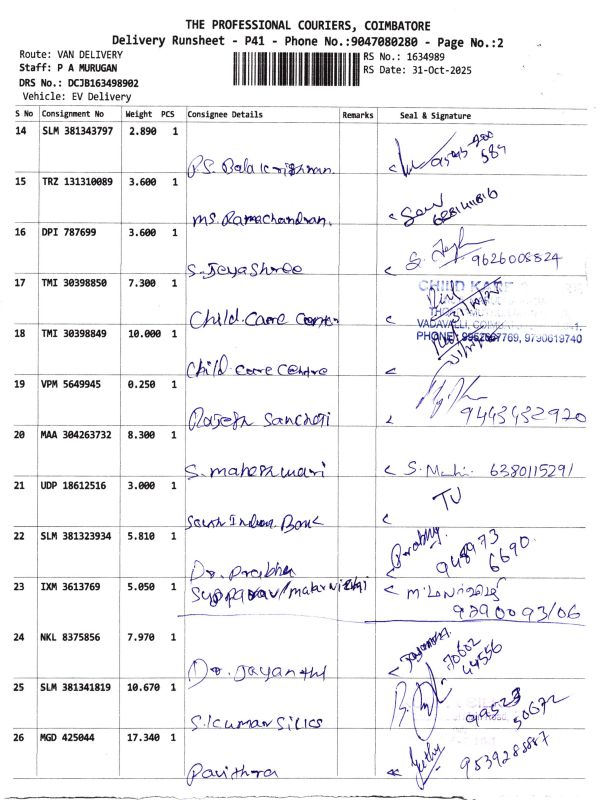 THE PROFESSIONAL COURIERS, COIMBATORE
Delivery Runsheet - P41 - Phone No.:9047080280 - Page No.:2
Route: VAN DELIVERY
RS No.: 1634989
Staff: P A MURUGAN
RS Date: 31-Oct-2025
DRS No.: DCJB163498902
Vehicle: EV Delivery
S No Consignment No Weight PCS Consignee Details Remarks Seal & Signature
14 SLM 381343797 2.890 1
P.S. Balakrishnan.
15 TRZ 131310089 3.600 1
MS. Ramachandran.
16 DPI 787699 3.600 1
S. Jeyashree 9626008824
17 TMI 30398850 7.300 1
CHILD CARE
Child Care
18 TMI 30398849 10.000 1
VADAVALLI,
PHONE: 9790619740
Child care centre
19 VPM 5649945 0.250 1
Rajesh Sancheti 9443452970
20 MAA 304263732 8.300 1
S. maheshwari S. 6380115291
21 UDP 18612516 3.000 1
TU
South Indian Bank
22 SLM 381323934 5.810 1
948973
6690.
Dr. Prabha
23 IXM 3613769 5.050 1
24 NKL 8375856 7.970 1
70602
44556
Dr. Jayanthi
25 SLM 381341819 10.670 1
99523
50672
S. Kumar Silks
26 MGD 425044 17.340 1
Pavithra 9539288887